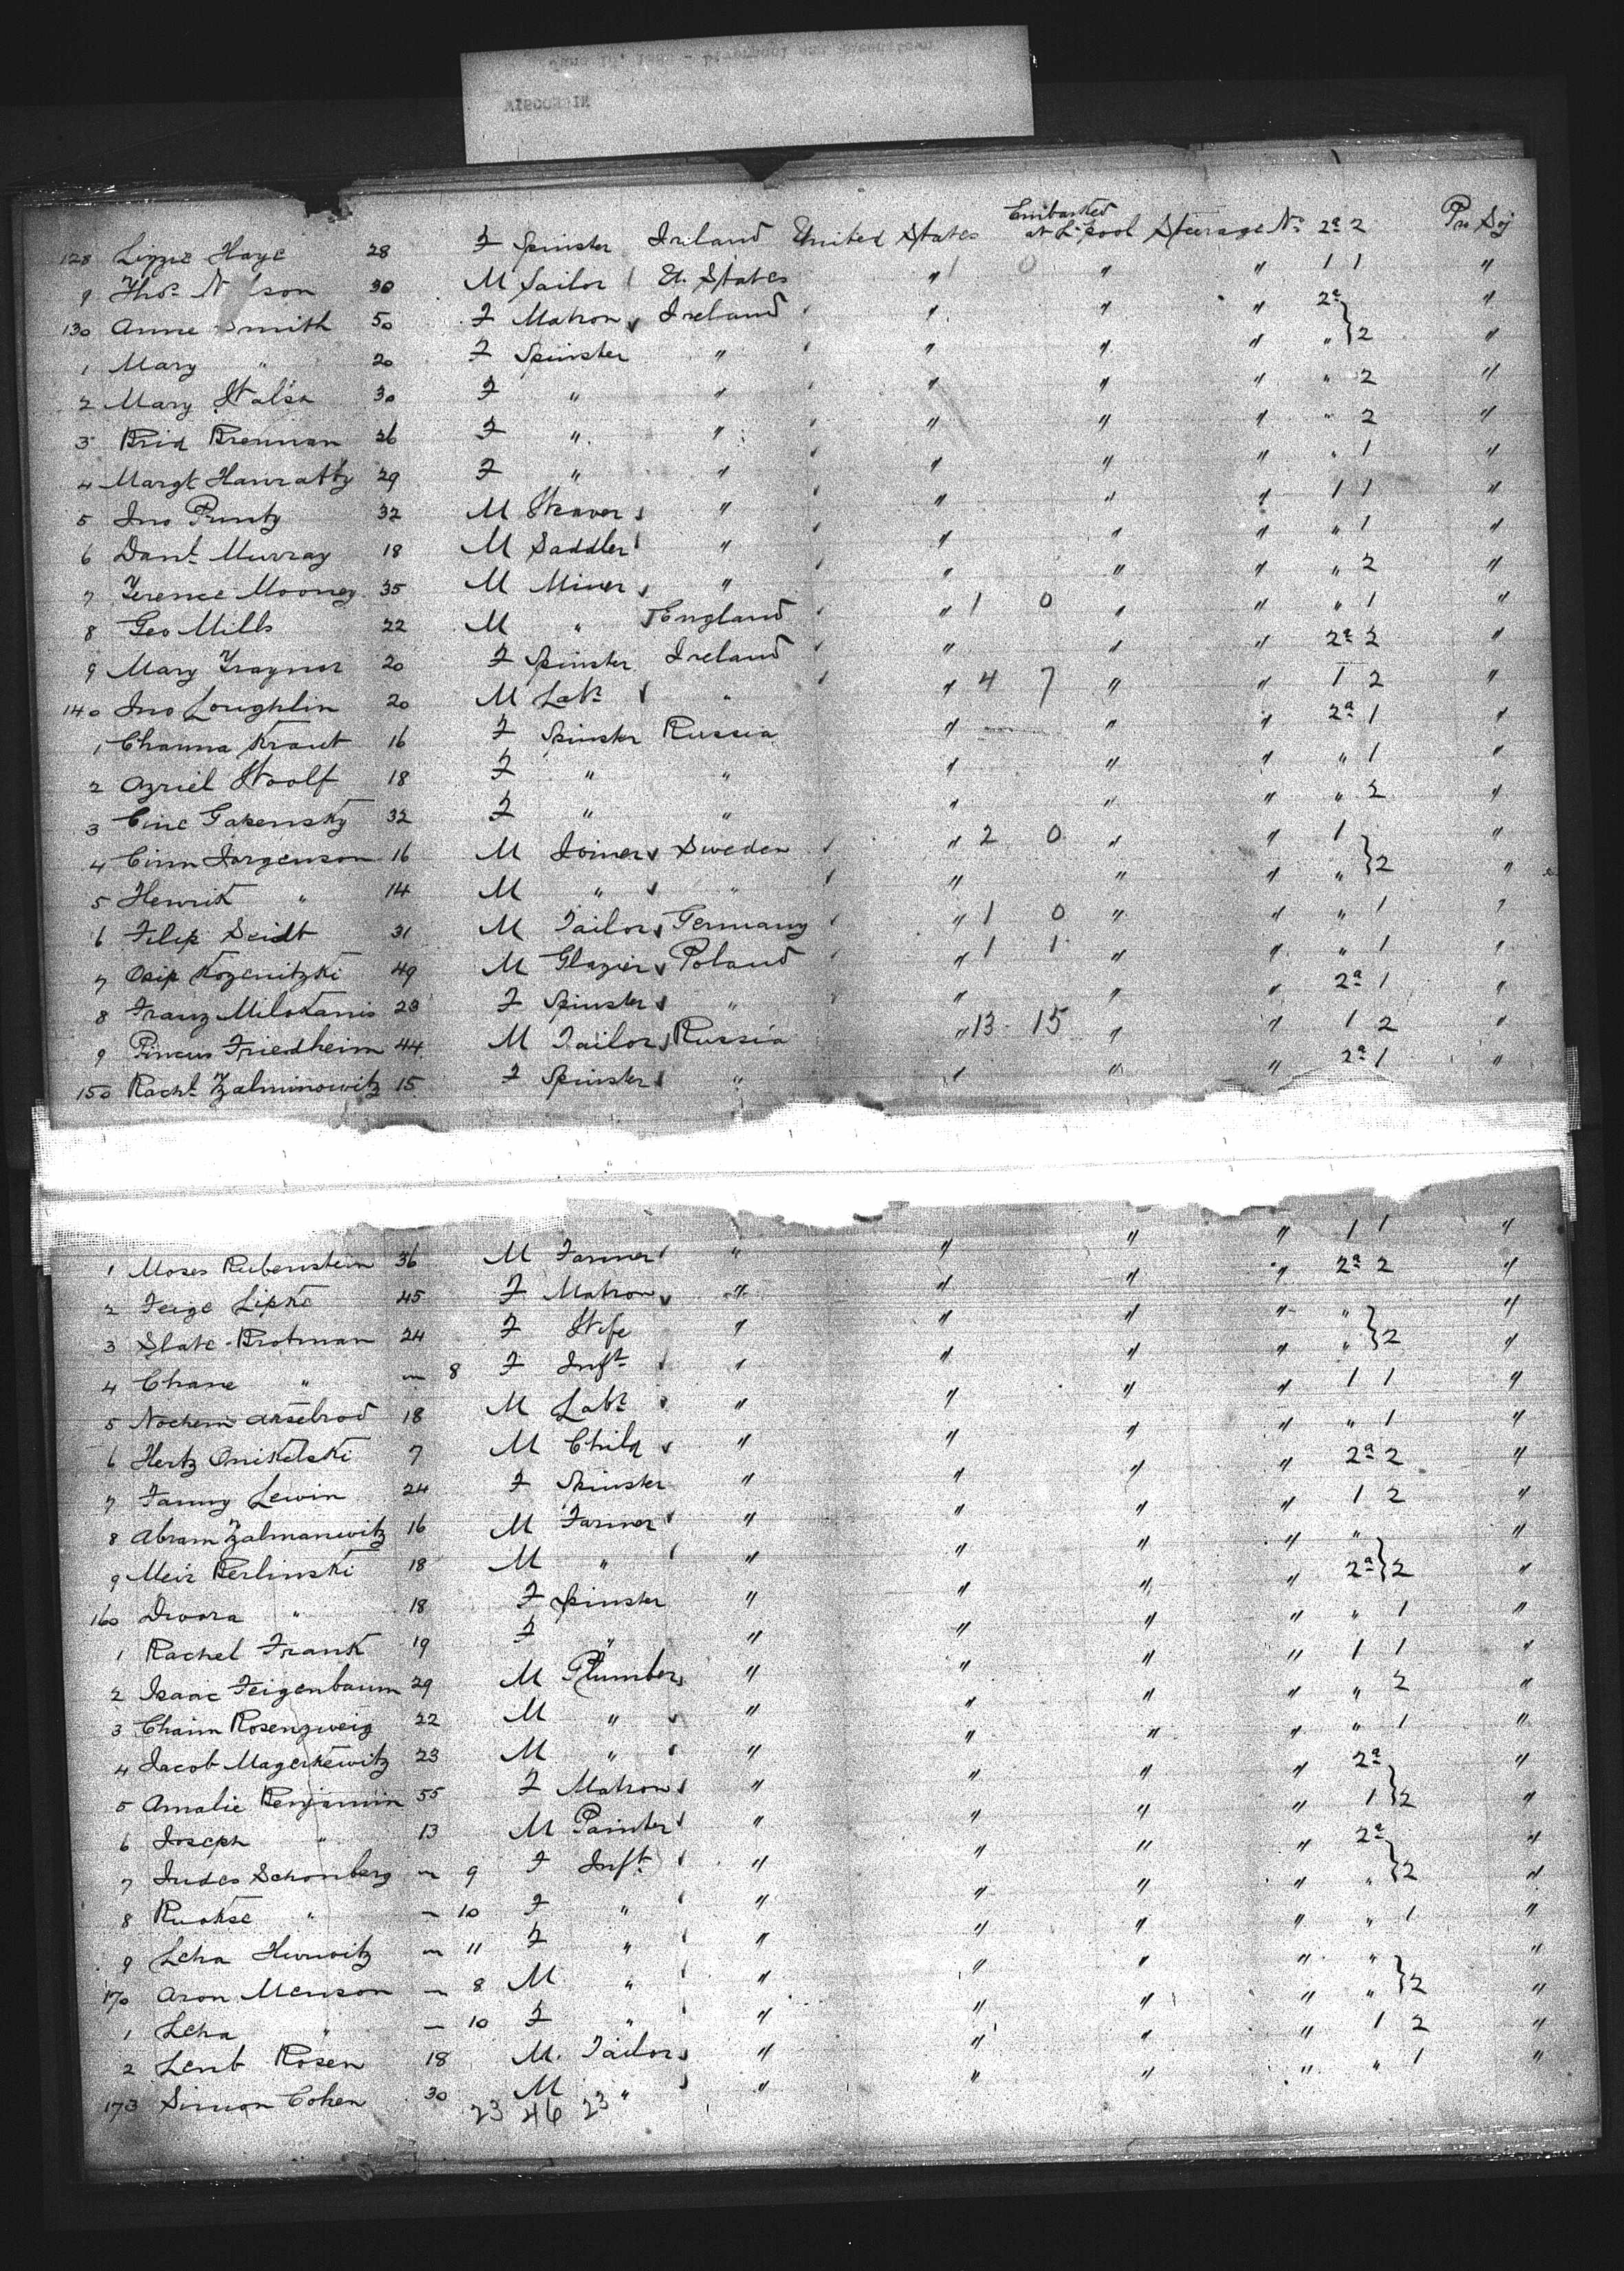 Embarked
128 Lizzie Haye 28 F Spinster Ireland United States at L'pool Steerage No 2a 2 Pro Soj
9 Thos N son 30 M Sailor U. States " 1 0 " " 1 1 "
130 Anne Smith 50 F Matron Ireland " " " 2a "
1 Mary " 20 F Spinster " " " " " } 2 "
2 Mary Walsh 30 F " " " " " " 2 "
3 Brid Brennan 26 F " " " " " " 2 "
4 Margt Hanratty 29 F " " " " " " 1 "
5 Jno Prunty 32 M Weaver " " " " 1 1 "
6 Danl Murray 18 M Saddler " " " " " 1 "
7 Terence Mooney 35 M Miner " " " " " 2 "
8 Geo Mills 22 M " England " 1 0 " " " 1 "
9 Mary Traynor 20 F Spinster Ireland " " " 2a 2 "
140 Jno Loughlin 20 M Labr " " 4 7 " " 1 2 "
1 Channa Kraut 16 F Spinster Russia " " " 2a 1 "
2 Azriel Woolf 18 F " " " " " " 1 "
3 Cine 32 F " " " " " " 2 "
4 Jorgenson 16 M Joiner Sweden " 2 0 " " 1 "
5 Henrik " 14 M " " " " " " } 2 "
6 Filip Seidt 31 M Tailor Germany " 1 0 " " " 1 "
7 Osip Kozenitzki 49 M Glazier Poland " 1 1 " " " 1 "
8 Franz Milokanis 23 F Spinster " " " " 2a 1 "
9 Pincus Friedheim 44 M Tailor Russia " 13 15 " " 1 2 "
150 Rachl Zalminowitz 15 F Spinster " " " " 2a 1 "
1 Moses Rubenstein 36 M Farmer " " " " 1 1 "
2 Feige Lipke 45 F Matron " " " " 2a 2 "
3 Slate Brotman 24 F Wife " " " " " "
4 Chane " 8 F Inft " " " " " } 2 "
5 Nochem Akselrod 18 M Labr " " " " 1 1 "
6 Hertz Onikelski 7 M Child " " " " " 1 "
7 Fanny Lewin 24 F Spinster " " " " 2a 2 "
8 Abram Zalmanewitz 16 M Farmer " " " " 1 2 "
9 Meir Berlinski 18 M " " " " " " "
160 Dwora " 18 F Spinster " " " " 2a } 2 "
1 Rachel Frank 19 F " " " " " " 1 "
2 Isaac Feigenbaum 29 M Plumber " " " " 1 1 "
3 Chaim Rosenzweig 22 M " " " " " " 2 "
4 Jacob Magerkewitz 23 M " " " " " " 1 "
5 Amalie Benjamin 55 F Matron " " " " 2a "
6 Joseph " 13 M Painter " " " " 1 } 2 "
7 Judes Schonberg 9 F Inft " " " " 2a "
8 " 10 F " " " " " " } 2 "
9 Leha Hurwitz 11 F " " " " " " 1 "
170 Aron Menson 8 M " " " " " " "
1 Leha " 10 F " " " " " " } 2 "
2 Rosen 18 M. Tailor " " " " 1 2 "
173 Simon Cohen 30 M " " " " " " 1 "
23 46 23